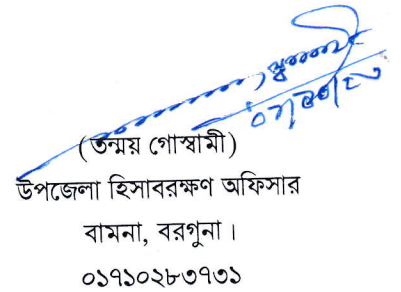 (তন্ময় গোস্বামী)
উপজেলা হিসাবরক্ষণ অফিসার
বামনা, বরগুনা।
০১৭১০২৮৩৭৩১